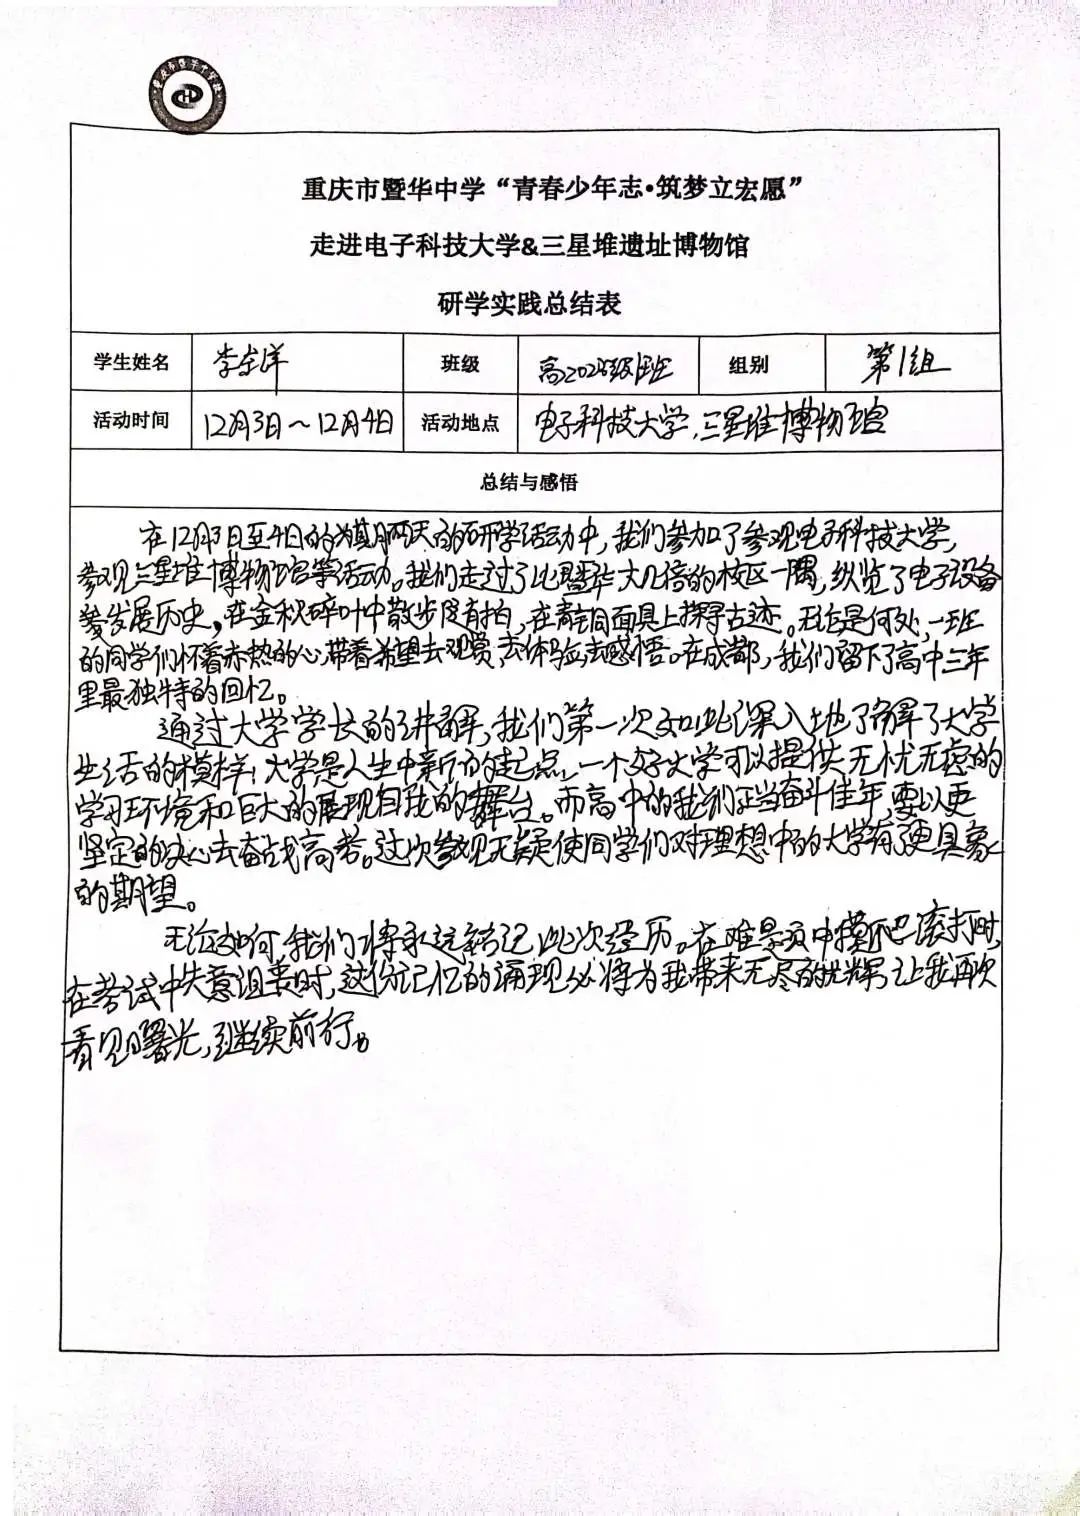 重庆市暨华中学“青春少年志•筑梦立宏愿”
走进电子科技大学&三星堆遗址博物馆
研学实践总结表
学生姓名 李 洋 班级 高2025级1班 组别 第1组
活动时间 12月3日～12月4日 活动地点 电子科技大学、三星堆博物馆
总结与感悟
在12月3日至4日的为期两天的研学活动中，我们参加了参观电子科技大学，
参观三星堆博物馆等活动。我们走过了比暨华大几倍的校区一隅，纵览了电子设备
发展历史，在金秋碎叶中散步 拍，在青铜面具上探寻古迹。无论是何处，一班
的同学们怀着赤热的心，带着希望去观赏，去体验，去感悟。在成都，我们留下了高中三年
里最独特的回忆。
通过大学学长的讲解，我们第一次如此深入地了解了大学
生活的模样！大学是人生中新的起点，一个好大学可以提供无忧无虑的
学习环境和巨大的展现自我的舞台。而高中的我们正当奋斗佳年，要以更
坚定的决心去奋战高考。这次参观无疑使同学们对理想中的大学有了更具象
的期望。
无论如何，我们将永远铭记此次经历。在难题中摸爬滚打时，
在考试中失意沮丧时，这份记忆的涌现必将为我带来无尽的光辉，让我再次
看见曙光，继续前行。